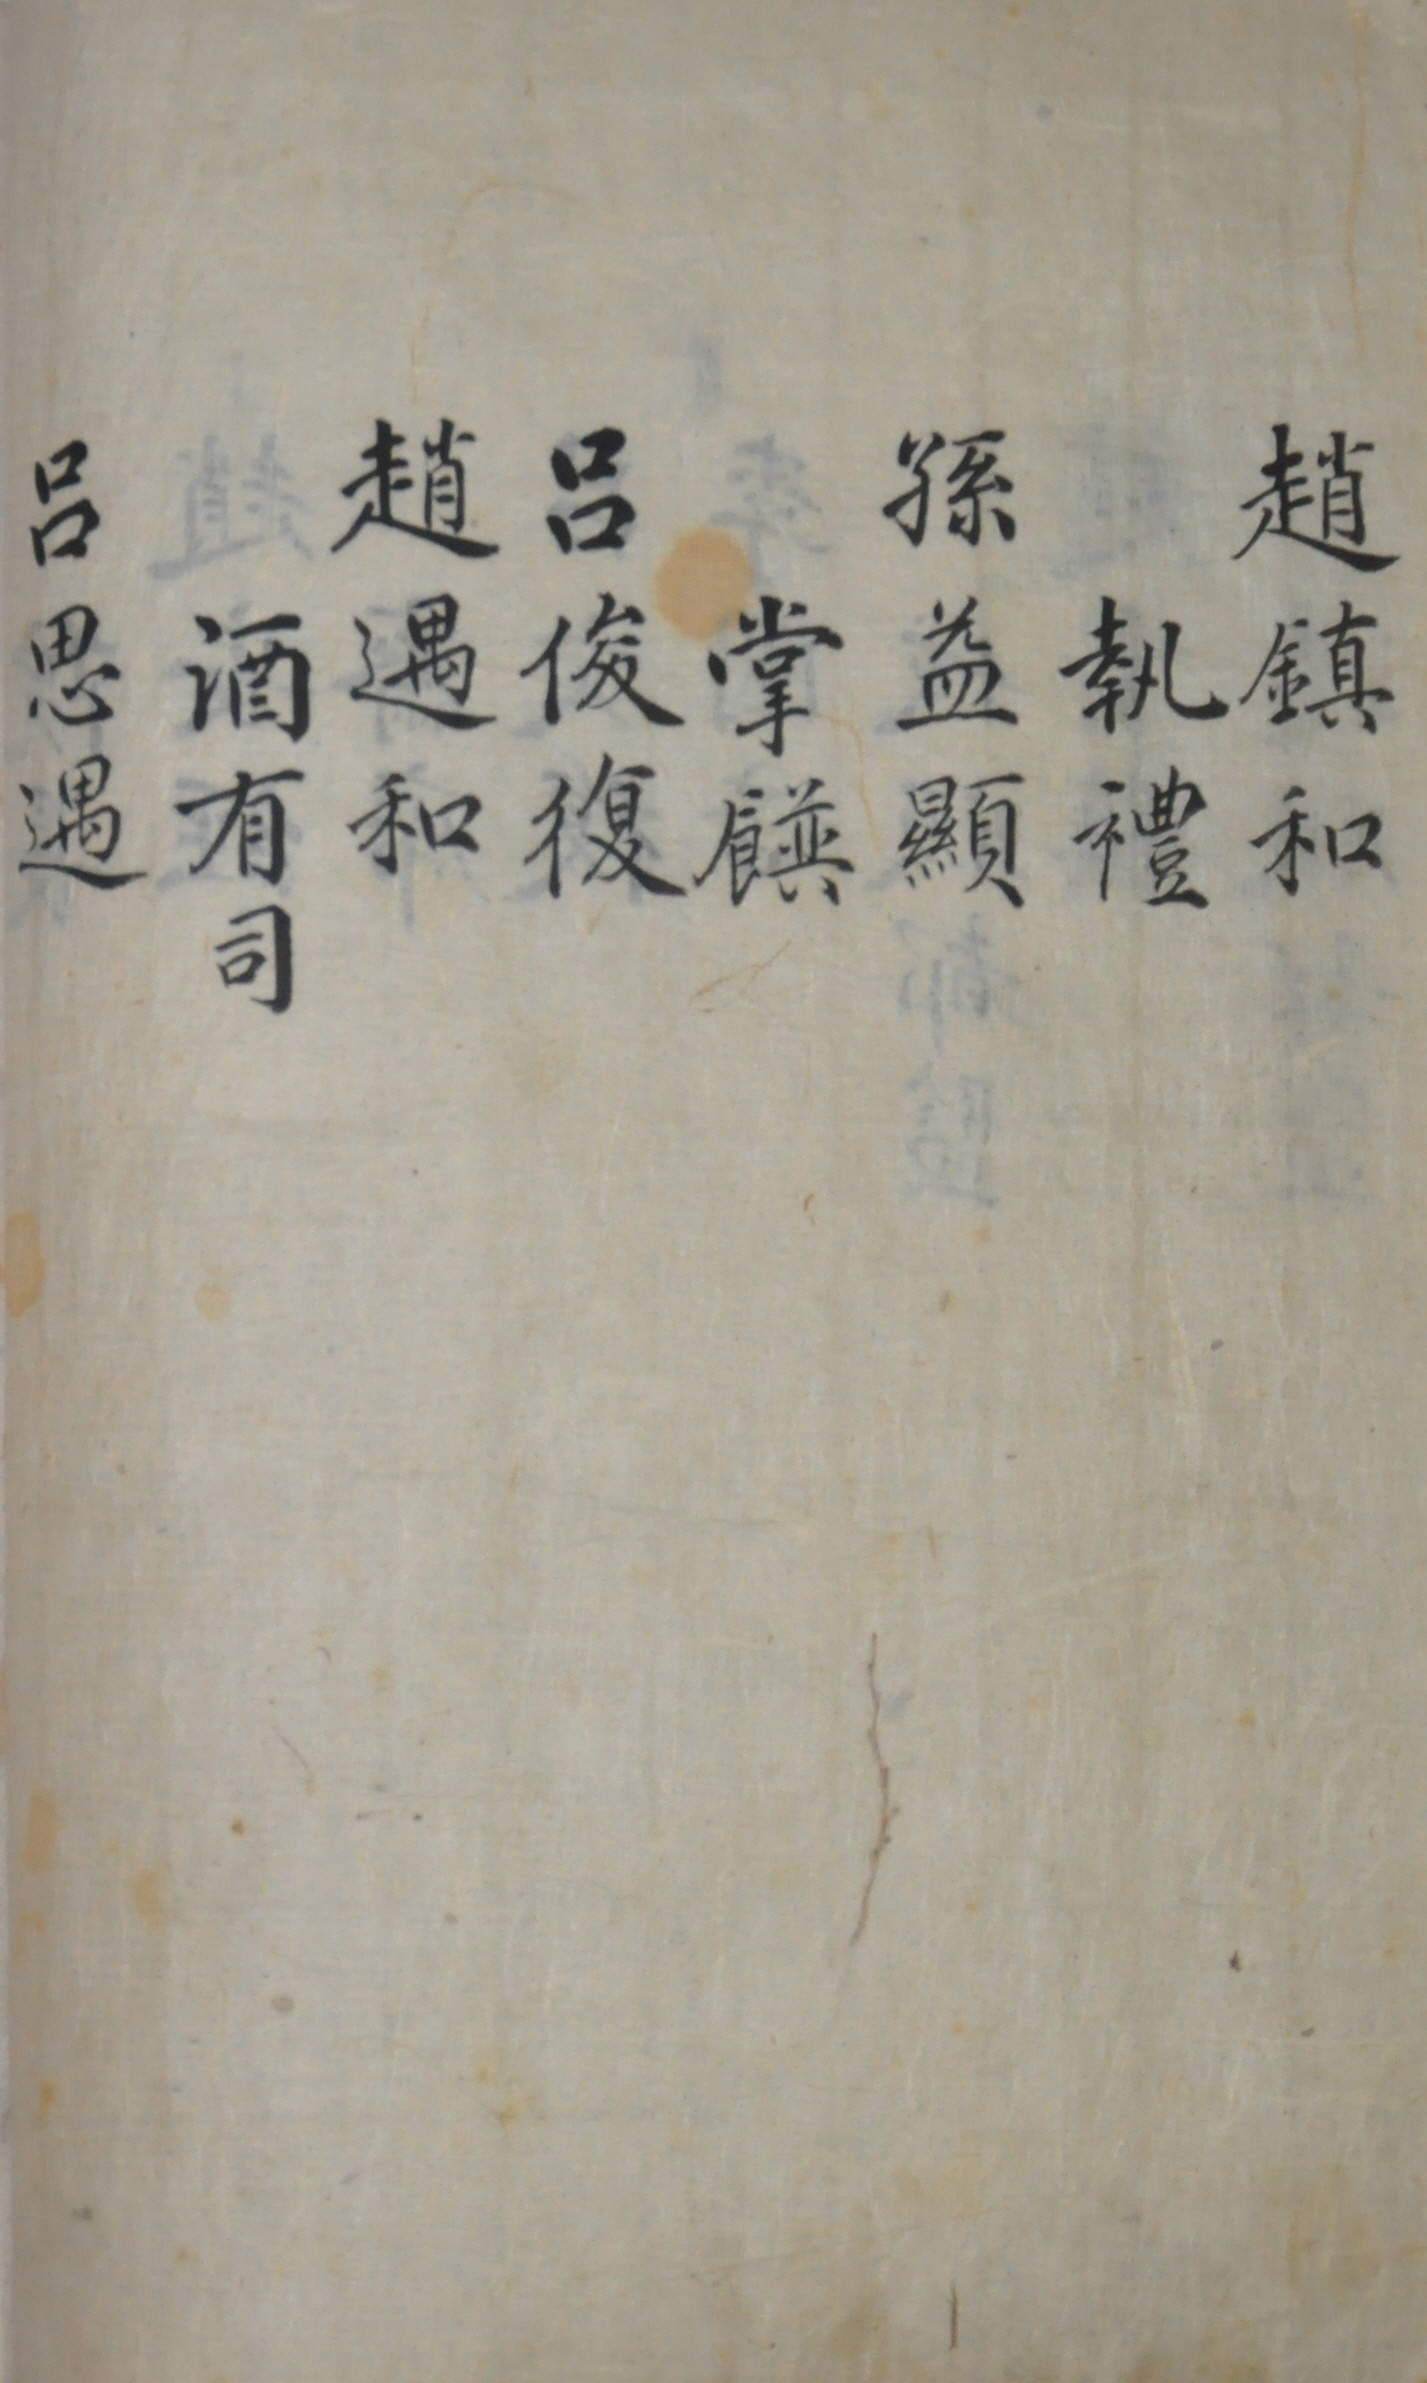 趙鎮和
執禮
孫益顯
掌饌
呂俊復
趙遇和
酒有司
呂思遇